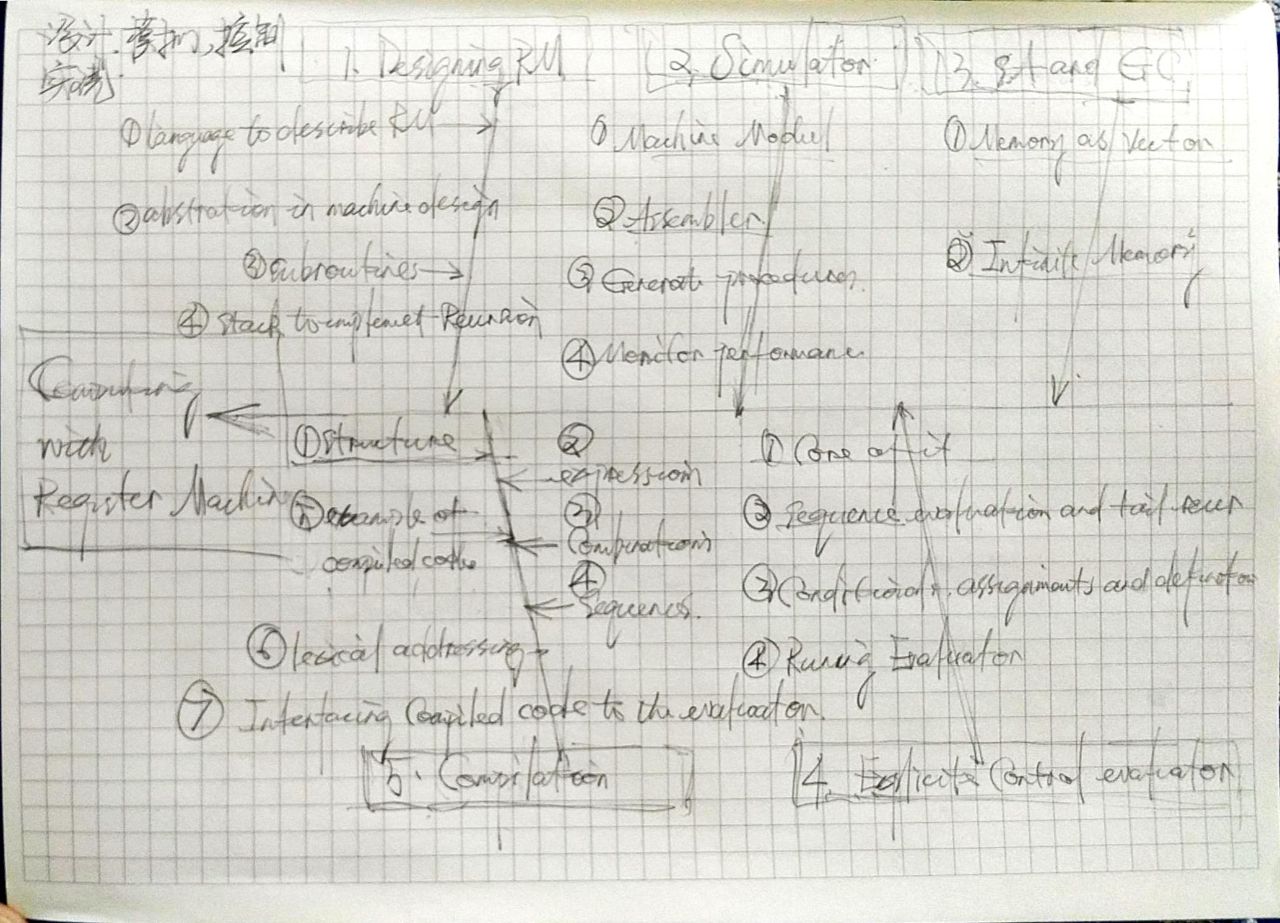 设计,模拟,控制
实现
1. Designing RM
① language to describe RM
② abstration in machine design
③ subroutines
④ Stack to implemet Recursion
2. Simulator
① Machine Model
② Assembler
③ Generate procedures
④ Monitor performance
3. and GC
① Memory as Vector
② Infinite Memory
Computing
with
Register Machine
① Structure
②
expression
③
Combinations
④
Sequences.
⑤ example of
compiled code
⑥ lexical addressing
⑦ Interfacing Compiled code to the evaluator.
5. Compilation
① Core of it
② Sequence evaluation and tail recur
③ Conditionals, assignments and definition
④ Runing Evaluator
4. Explicite Control evaluator